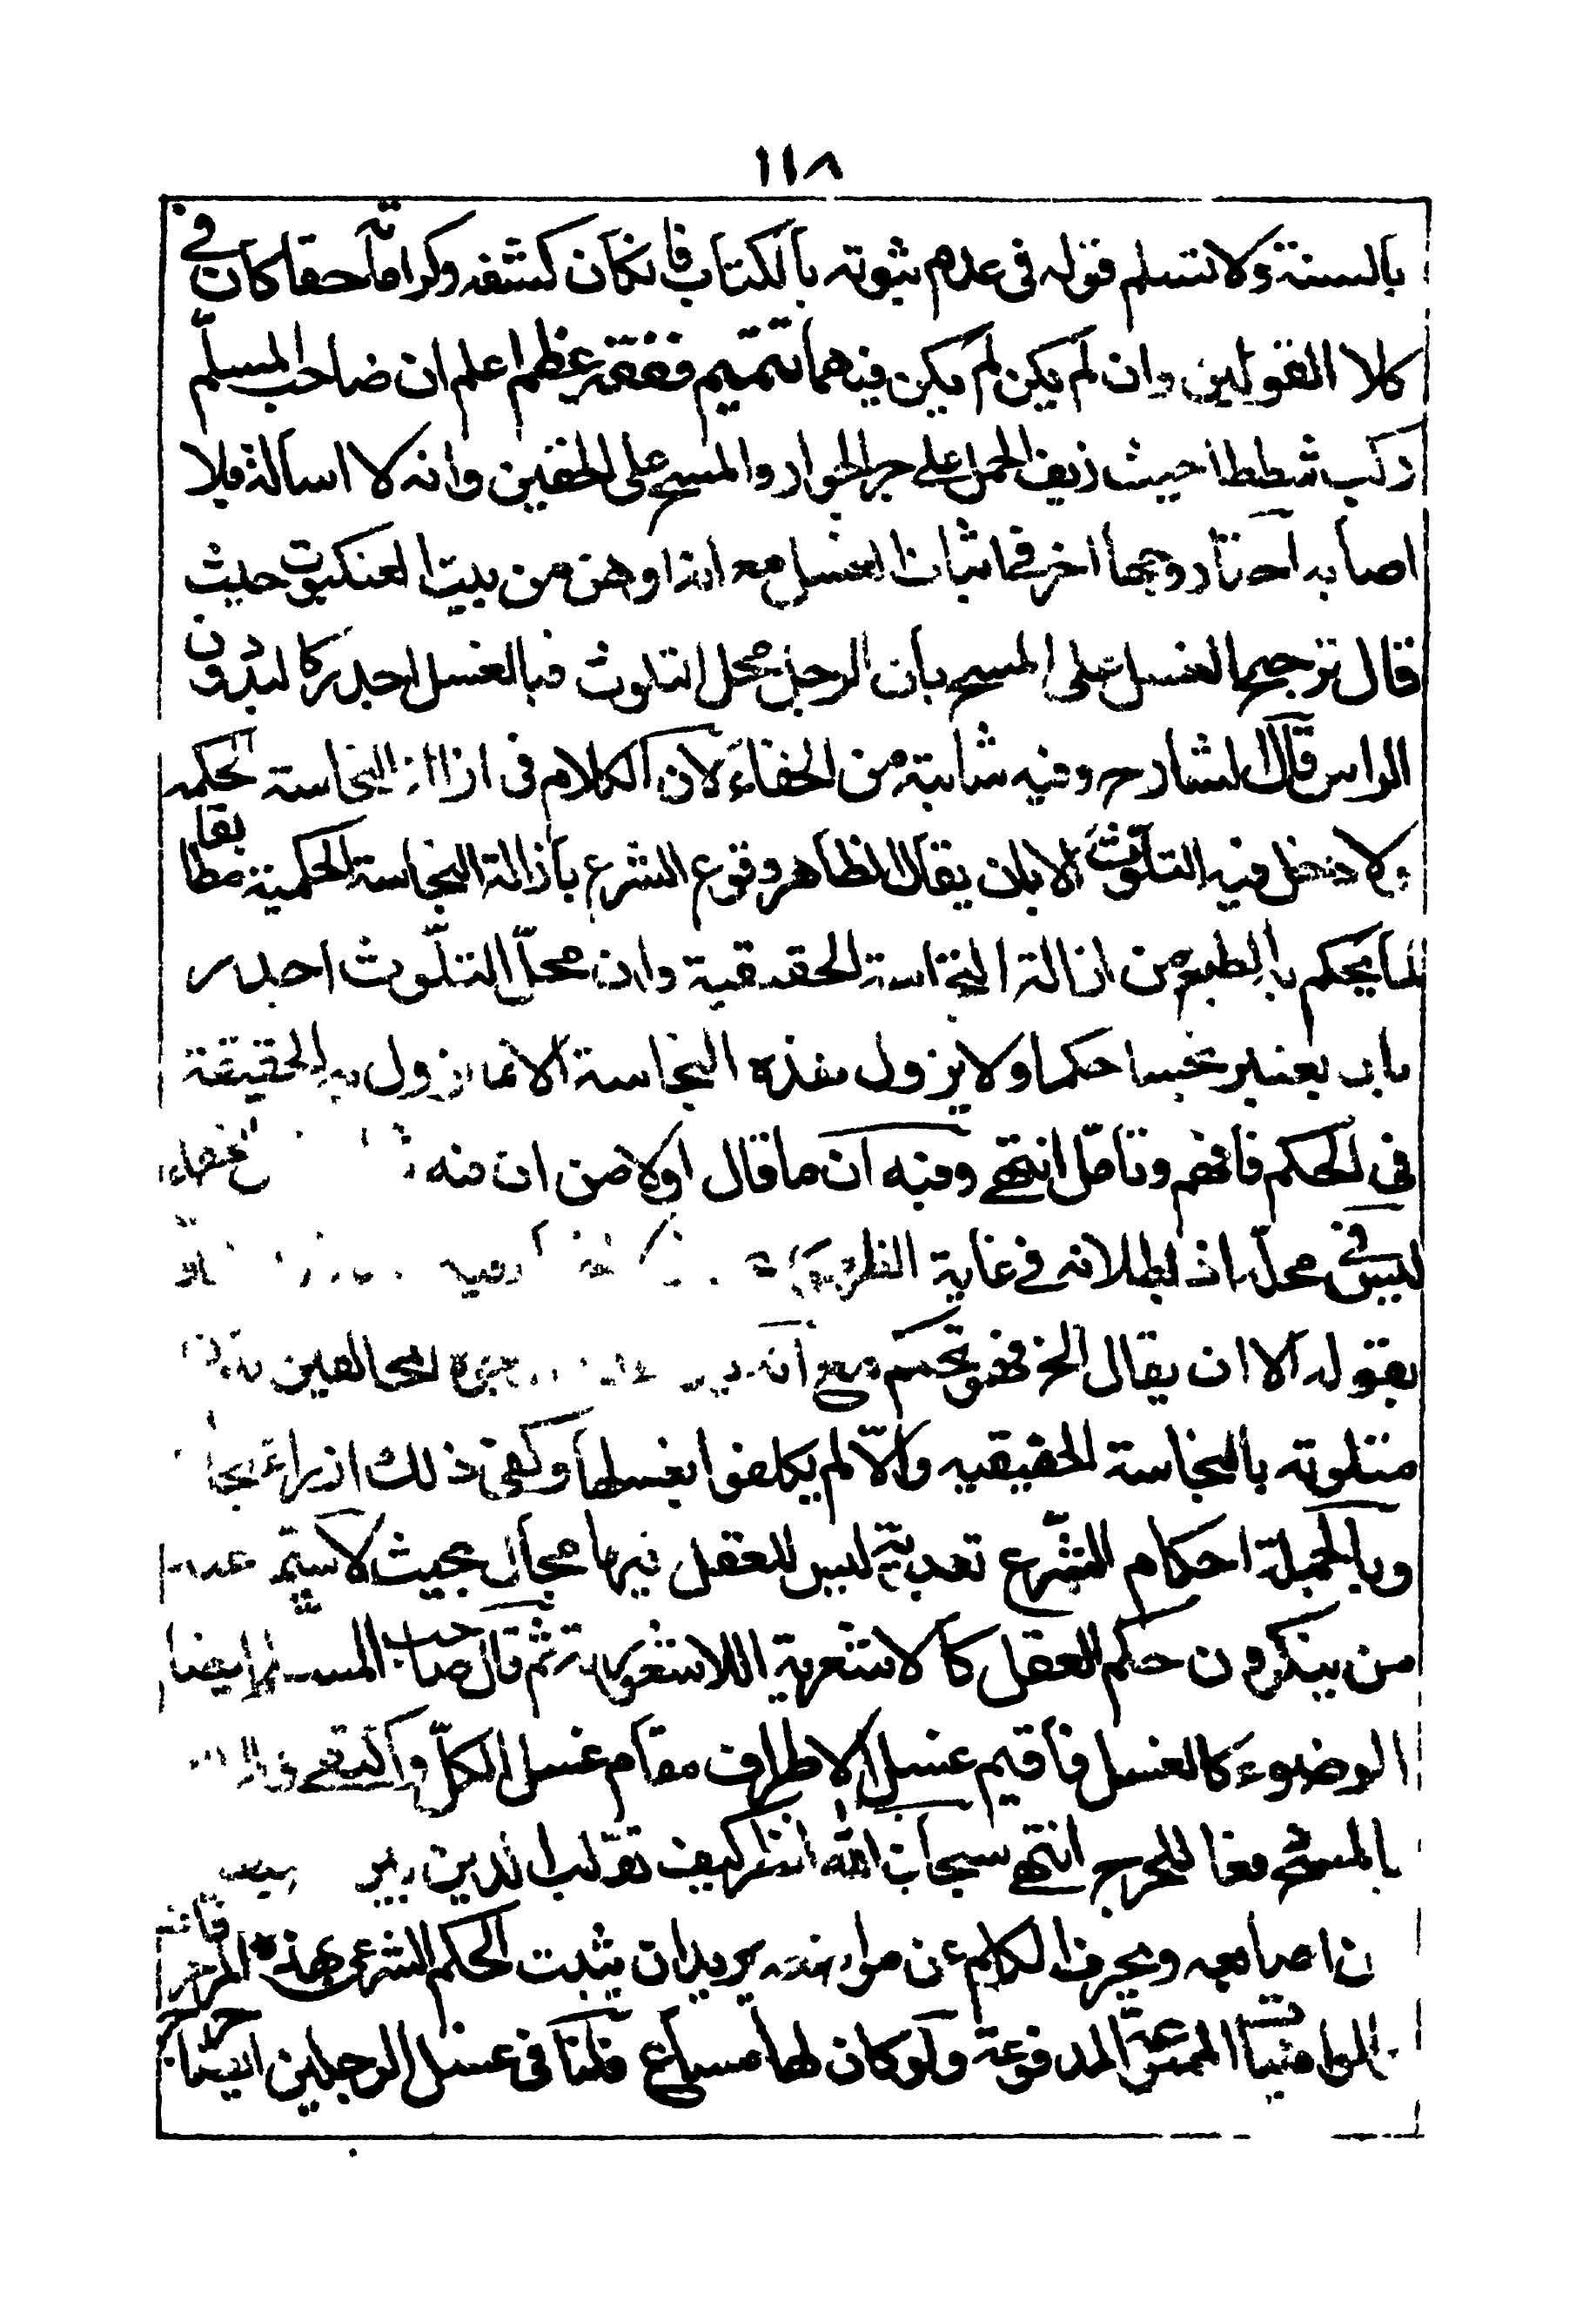 ١١٨
بالسنة ولا تسلم قوله فى عدم ثبوته بالكتاب فانكان كشفه وكراماته حقا كان فى
كلا القولين وان لم يكن لم يكن فيهما تتميم ففقه عظم اعلم ان صاحب المسلم
ركب شططا حيث زيف الحمل على جر الجوار والمسح على الخفين وانه لا اسالة فلا
اصابه آخرنا وجها اخر فى اثبات الغسل مع انه اوهن من بيت العنكبوت حيث
قال ترجيحا لغسل على المسح بان الرجل محل التلوث فبالغسل اجدر كالبدن دون
الراس قال الشارح وفيه شائبة من الخفاء لان الكلام فى ازالة النجاسة الحكميه
ولا دخل فيه التلوث الا بان يقال الظاهر وقوع الشرع بازالة النجاسة الحكمية مطابقا
لما يحكم بالطبع من ازالة النجاسة الحقيقية وان محل التلوث اجدر
بان يعتبر نجسا حكما ولا يزول هذه النجاسة الا بما يزول به الحقيقة
فى الحكم فافهم وتامل انتهى وفيه ان ما قال اولا من ان فيه
ليس فى محله اذ بطلانه فى غاية الظهور
بقوله الا ان يقال الخ فهو تحكم مع انه المخالفين
متلوثة بالنجاسة الحقيقيه والا لم يكلفوا بغسلها وكفى ذلك
وبالجملة احكام الشرع تعبدية ليس للعقل فيها مجال بحيث لا سيما عند
من ينكرون حكم العقل كالاشعرية اللاشعورية ثم قال صاحب المسلم ايضا
الوضوء كالغسل فاقيم غسل الاطراف مقام غسل الكل واكتفى فى
بالمسح دفعا للحرج انتهى سبحان الله انظر كيف تقولب الدين
ن اصابعه ويحرف الكلام عن مواضعه يريد ان يثبت الحكم الشرعى بهذه المزخرفات
الواهية الممنوعة المدفوعة ولو كان لها مساغ قلنا فى غسل الرجلين ايضا حرج